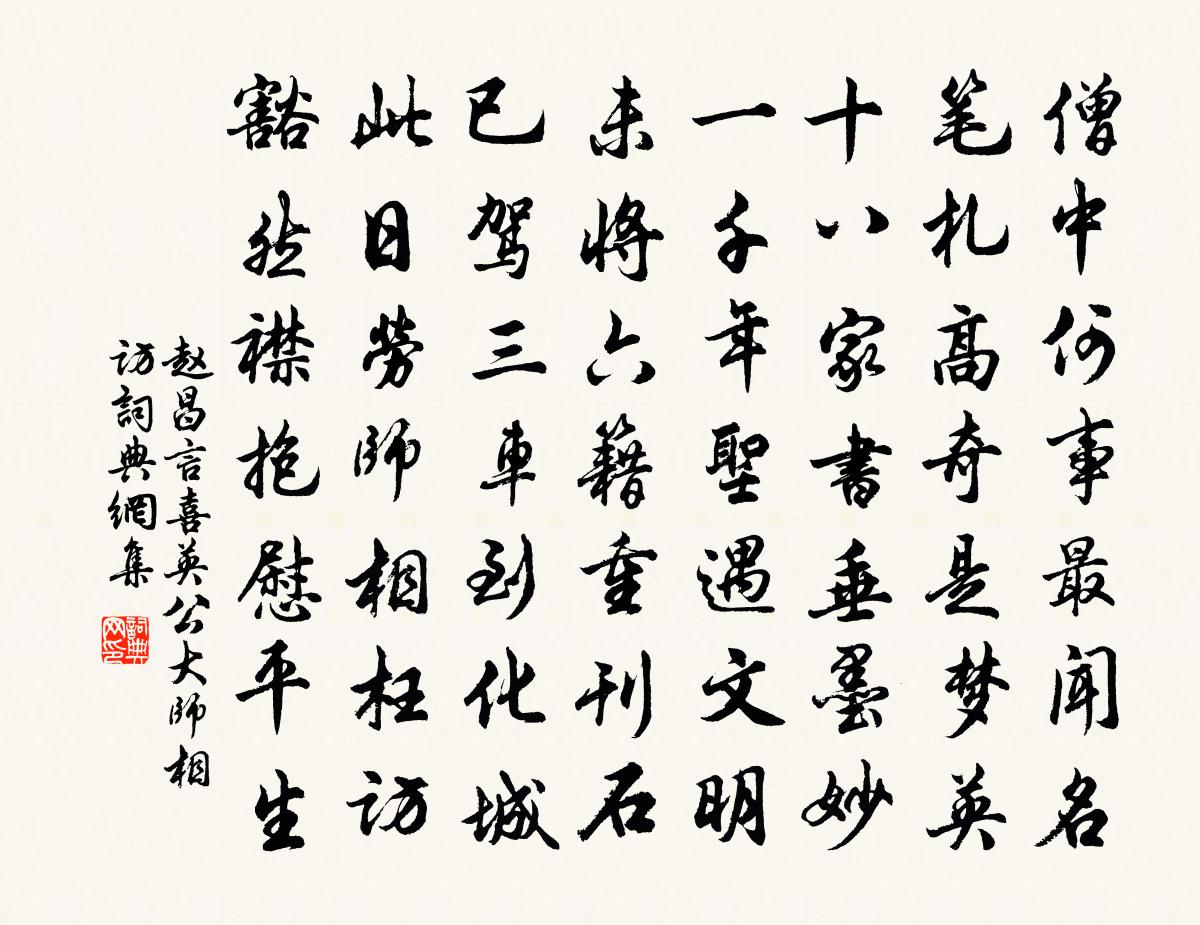 僧中何事最闻名
笔札高奇是梦英
十八家書垂墨妙
一千年聖遇文明
未将六籍重刊石
已驾三車到化城
此日劳师相枉访
豁然襟抱慰平生
赵昌言喜英公大师相
访詞典網集
詞典网印